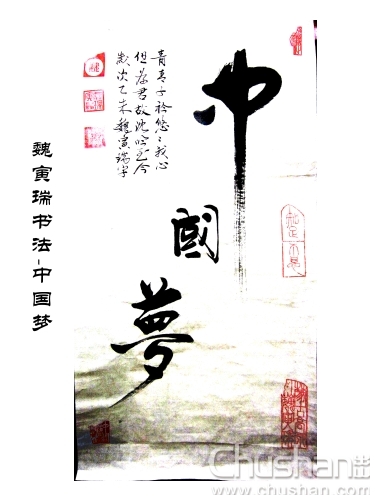 中國夢
青青子衿悠悠我心
但為君故沈吟至今
歲次乙未魏寅瑞字
魏寅瑞书法-中国梦
Chushan
chushan.com